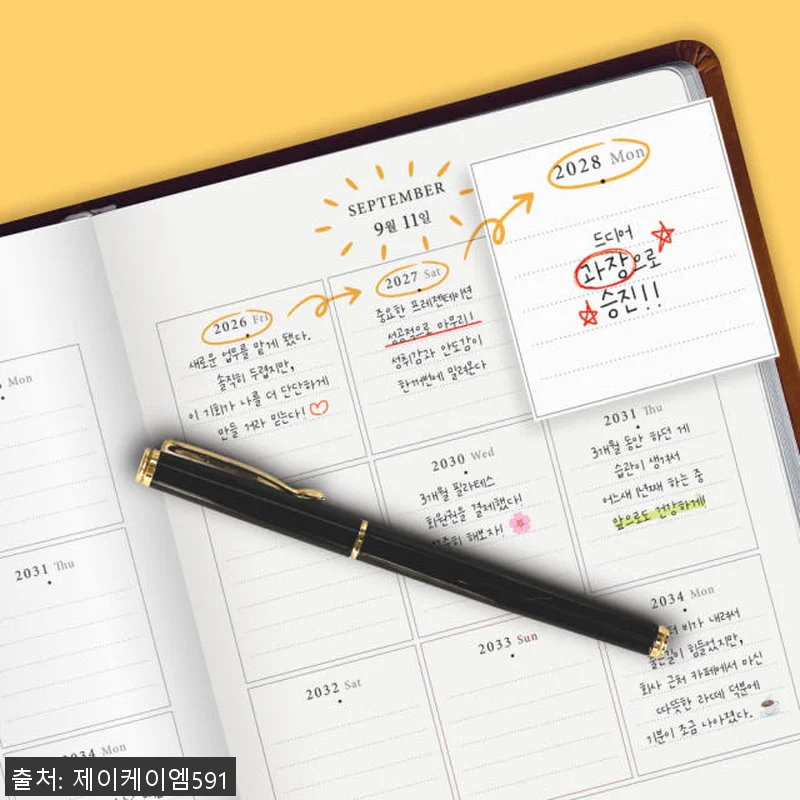 SEPTEMBER
9월 11일
2026 Fri
새로운 업무를 맡게 됐다.
솔직히 두렵지만,
이 기회가 나를 더 단단하게
만들 거라 믿는다!
2027 Sat
중요한 프레젠테이션
성공적으로 마무리!
성취감과 안도감이
한꺼번에 밀려온다
2028 Mon
드디어
과장으로
승진!!
Mon
2031 Thu
2034 Mon
2030 Wed
3개월 필라테스
회원권을 결제했다!
해보자!
2031 Thu
3개월 동안 하던 게
습관이 생겨서
어느새 1년째 하는 중
앞으로도 건강하게!
2032 Sat
2033 Sun
2034 Mon
비가 내려서
힘들었지만,
회사 근처 카페에서 마신
따뜻한 라떼 덕분에
기분이 조금 나아졌다.
출처: 제이케이엠591